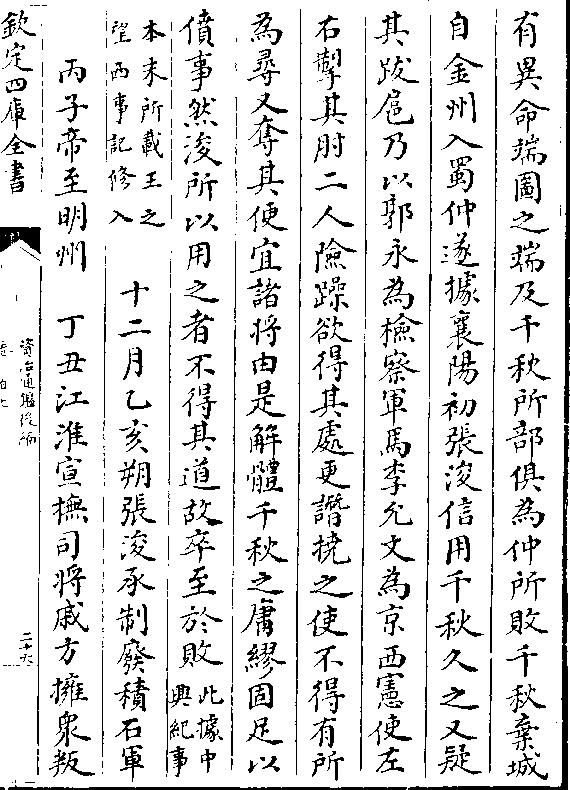 有異命端圖之端及千秋所部俱為仲所敗千秋棄城
自金州入蜀仲遂據襄陽初張浚信用千秋久之又疑
其跋扈乃以郭永為檢察軍馬李允文為京西憲使左
右掣其肘二人險躁欲得其處更譖撓之使不得有所
為尋又奪其便宜諸将由是解體千秋之庸繆固足以
僨事然浚所以用之者不得其道故卒至於敗此據中
興紀事
本末所載王之
望西事記修入
十二月乙亥朔張浚承制廢積石軍
丙子帝至明州 丁丑江淮宣撫司将戚方擁衆叛
欽定四庫全書
資治通鑑後編
二十六